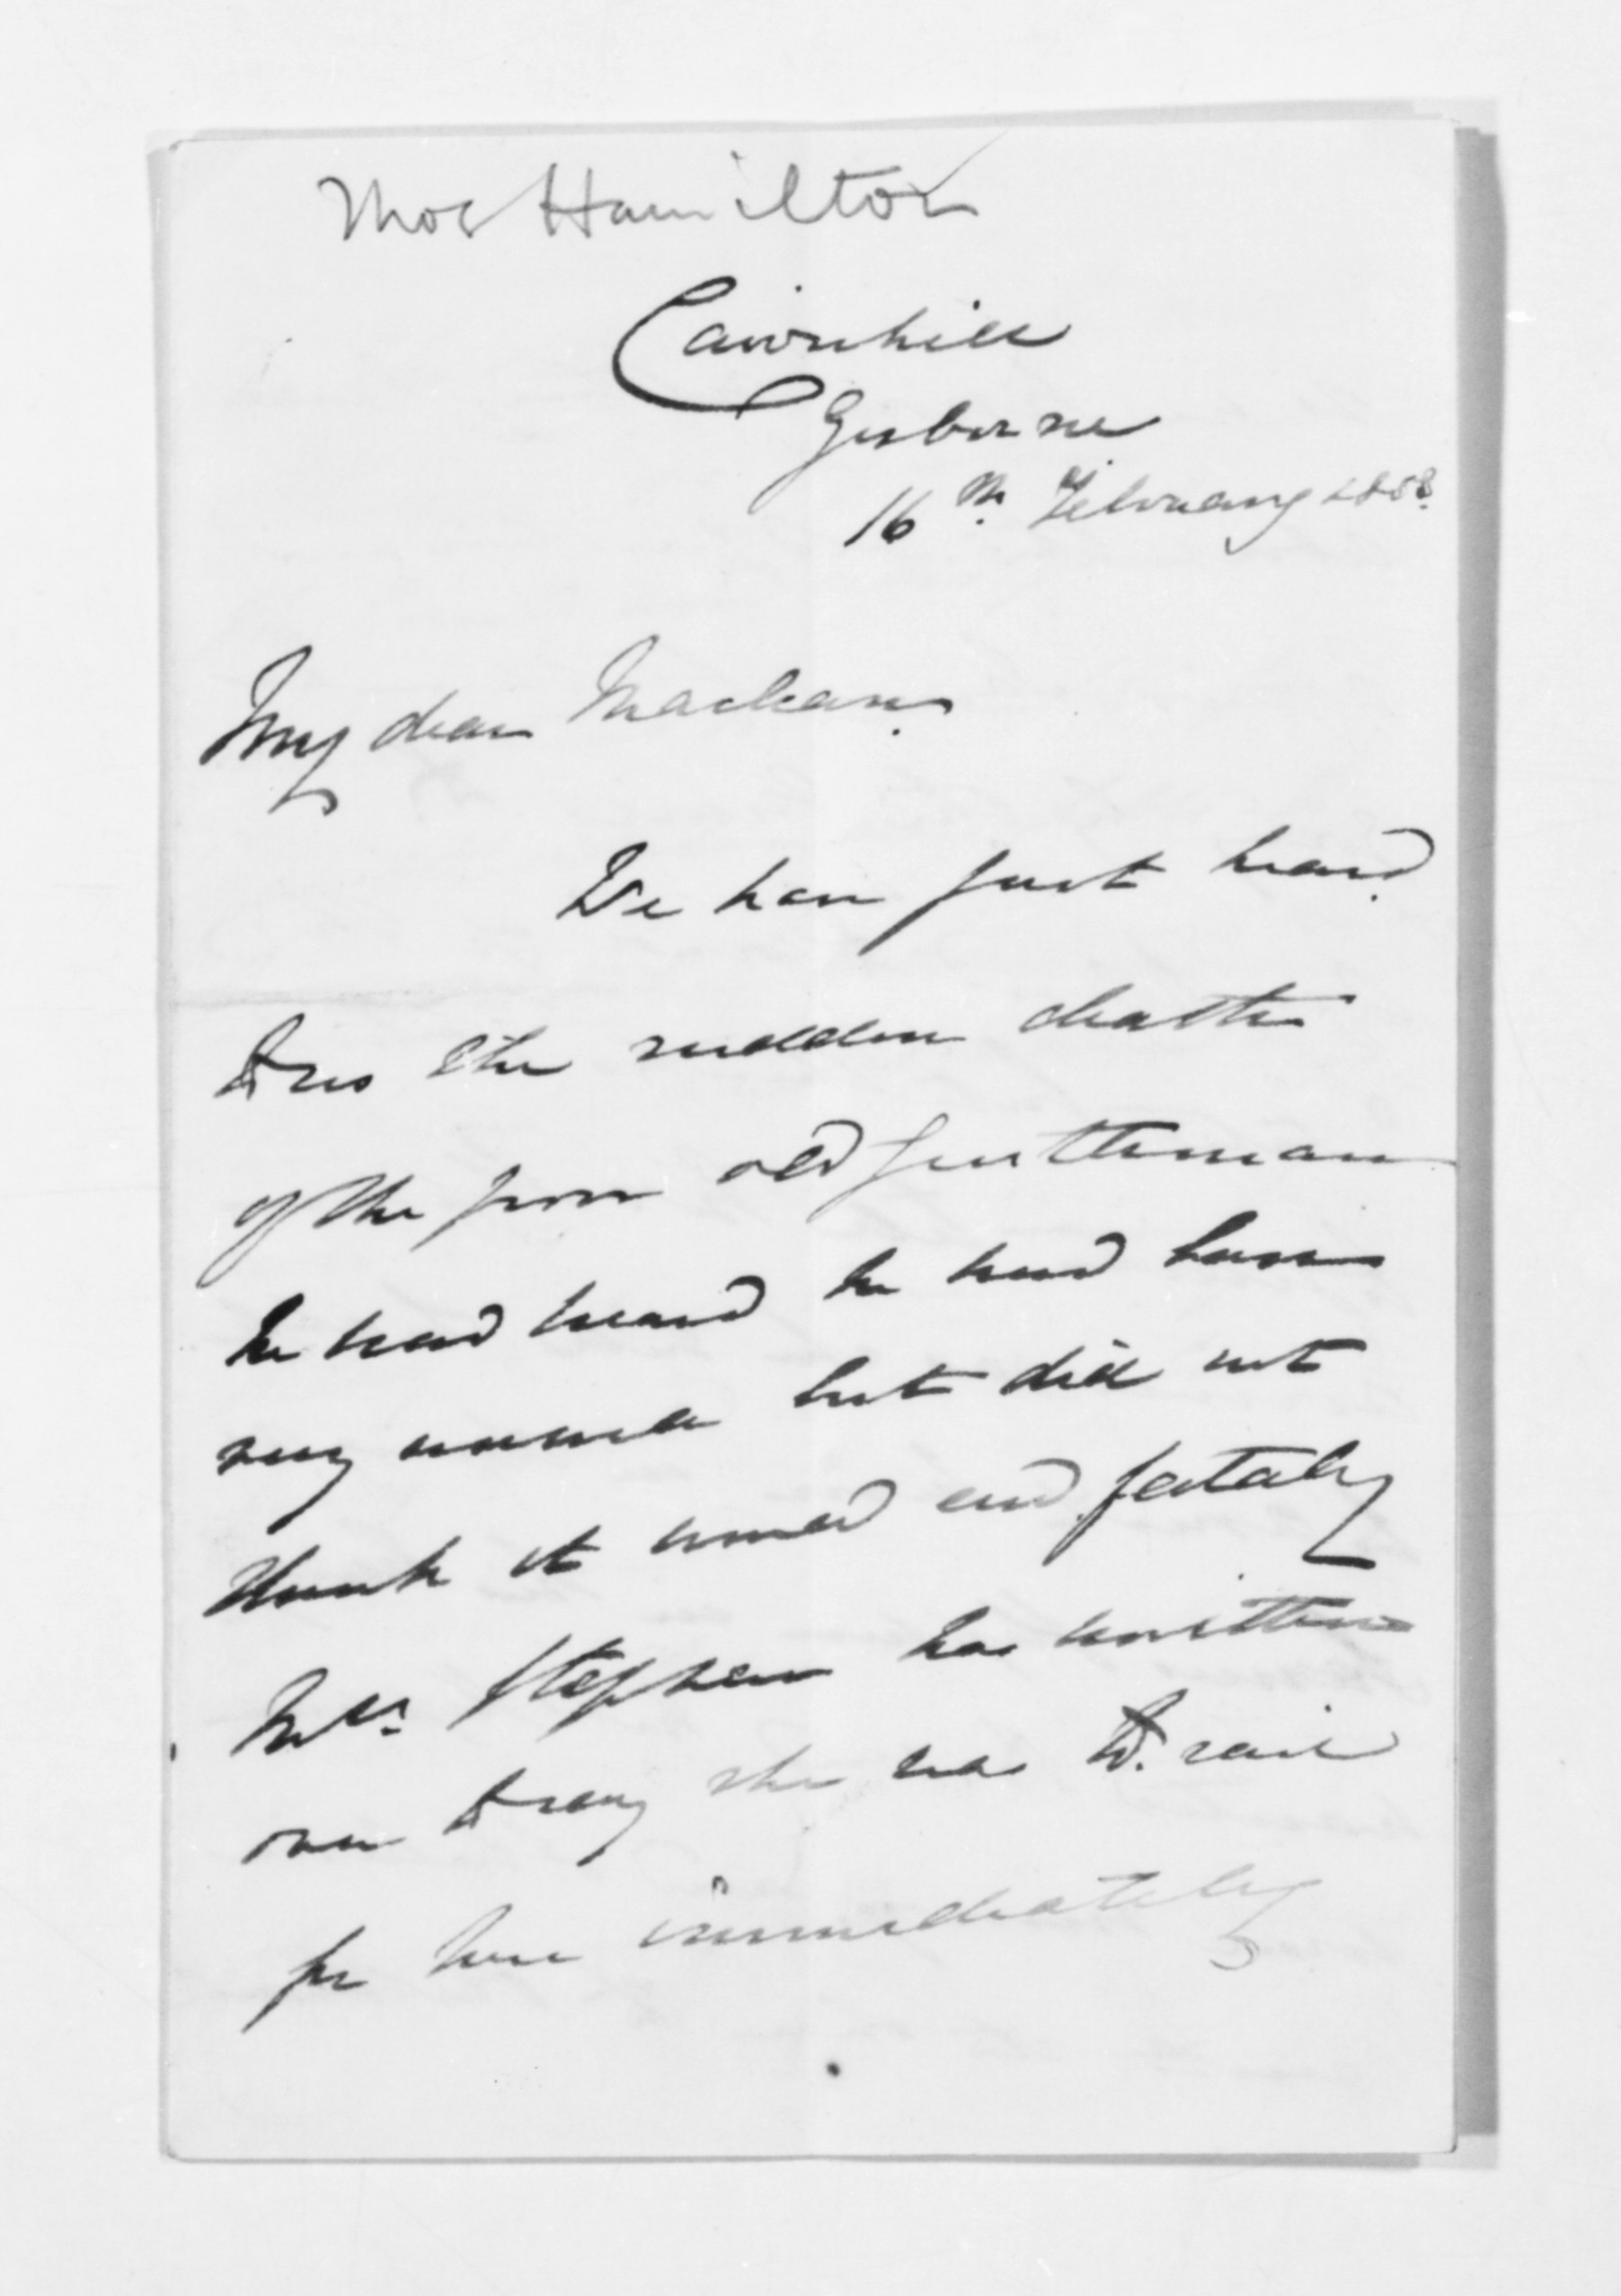 Thos Hamilton
Cairnhill
Gisborne
16th February 1888
My dear Maclean
We have just heard
the sudden death
of the poor old gentleman
We had heard he had been
very unwell but did not
think it would end fatally
Mrs Stephen has written
over to say she has to sail
for home immediately